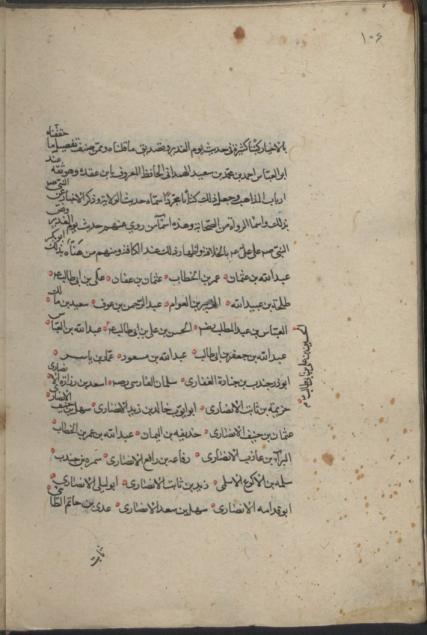 ١٠٦
بالاخبار كتبا كثيرة فى حديث يوم الغدير وتصديق ما قلناه وممن صنف تفصيل ما حققناه
ابو العباس احمد بن محمد بن سعيد الهمدانى الحافظ المعروف بابن عقدة وهو ثقة عند
ارباب المذاهب وجعل ذلك كتابا مجردا سماه حديث الولاية وذكر الاخبار عن النبى ص
بذلك واسماء الرواة من الصحابة وهذه اسماء من روى عنهم حديث يوم الغدير ونص
النبى صم على على عم بالخلافة واظهار ذلك عند الكافة ومنهم من هناه بذلك ابوبكر
عبدالله بن عثمان عمر بن الخطاب عثمان بن عفان على بن ابى طالب عم
طلحة بن عبيدالله الزبير بن العوام عبدالرحمن بن عوف سعيد بن مالك
العباس بن عبدالمطلب الحسن بن على بن ابى طالب عم عبدالله بن العباس
الحسين بن على بن ابى طالب عم
عبدالله بن جعفر بن ابى طالب عبدالله بن مسعود عمار بن ياسر
ابوذر جندب بن جنادة الغفارى سلمان الفارسى اسعد بن زرارة الانصارى
خزيمة بن ثابت الانصارى ابو ايوب خالد بن زيد الانصارى سهل بن حنيف الانصارى
عثمان بن حنيف الانصارى حذيفة بن اليمان عبدالله بن عمر بن الخطاب
البراء بن عازب الانصارى رفاعة بن رافع الانصارى سمرة بن جندب
سلمة بن الاكوع الاسلمى زيد بن ثابت الانصارى ابو ليلى الانصارى
ابو قدامة الانصارى سهل بن سعد الانصارى عدى بن حاتم الطائى